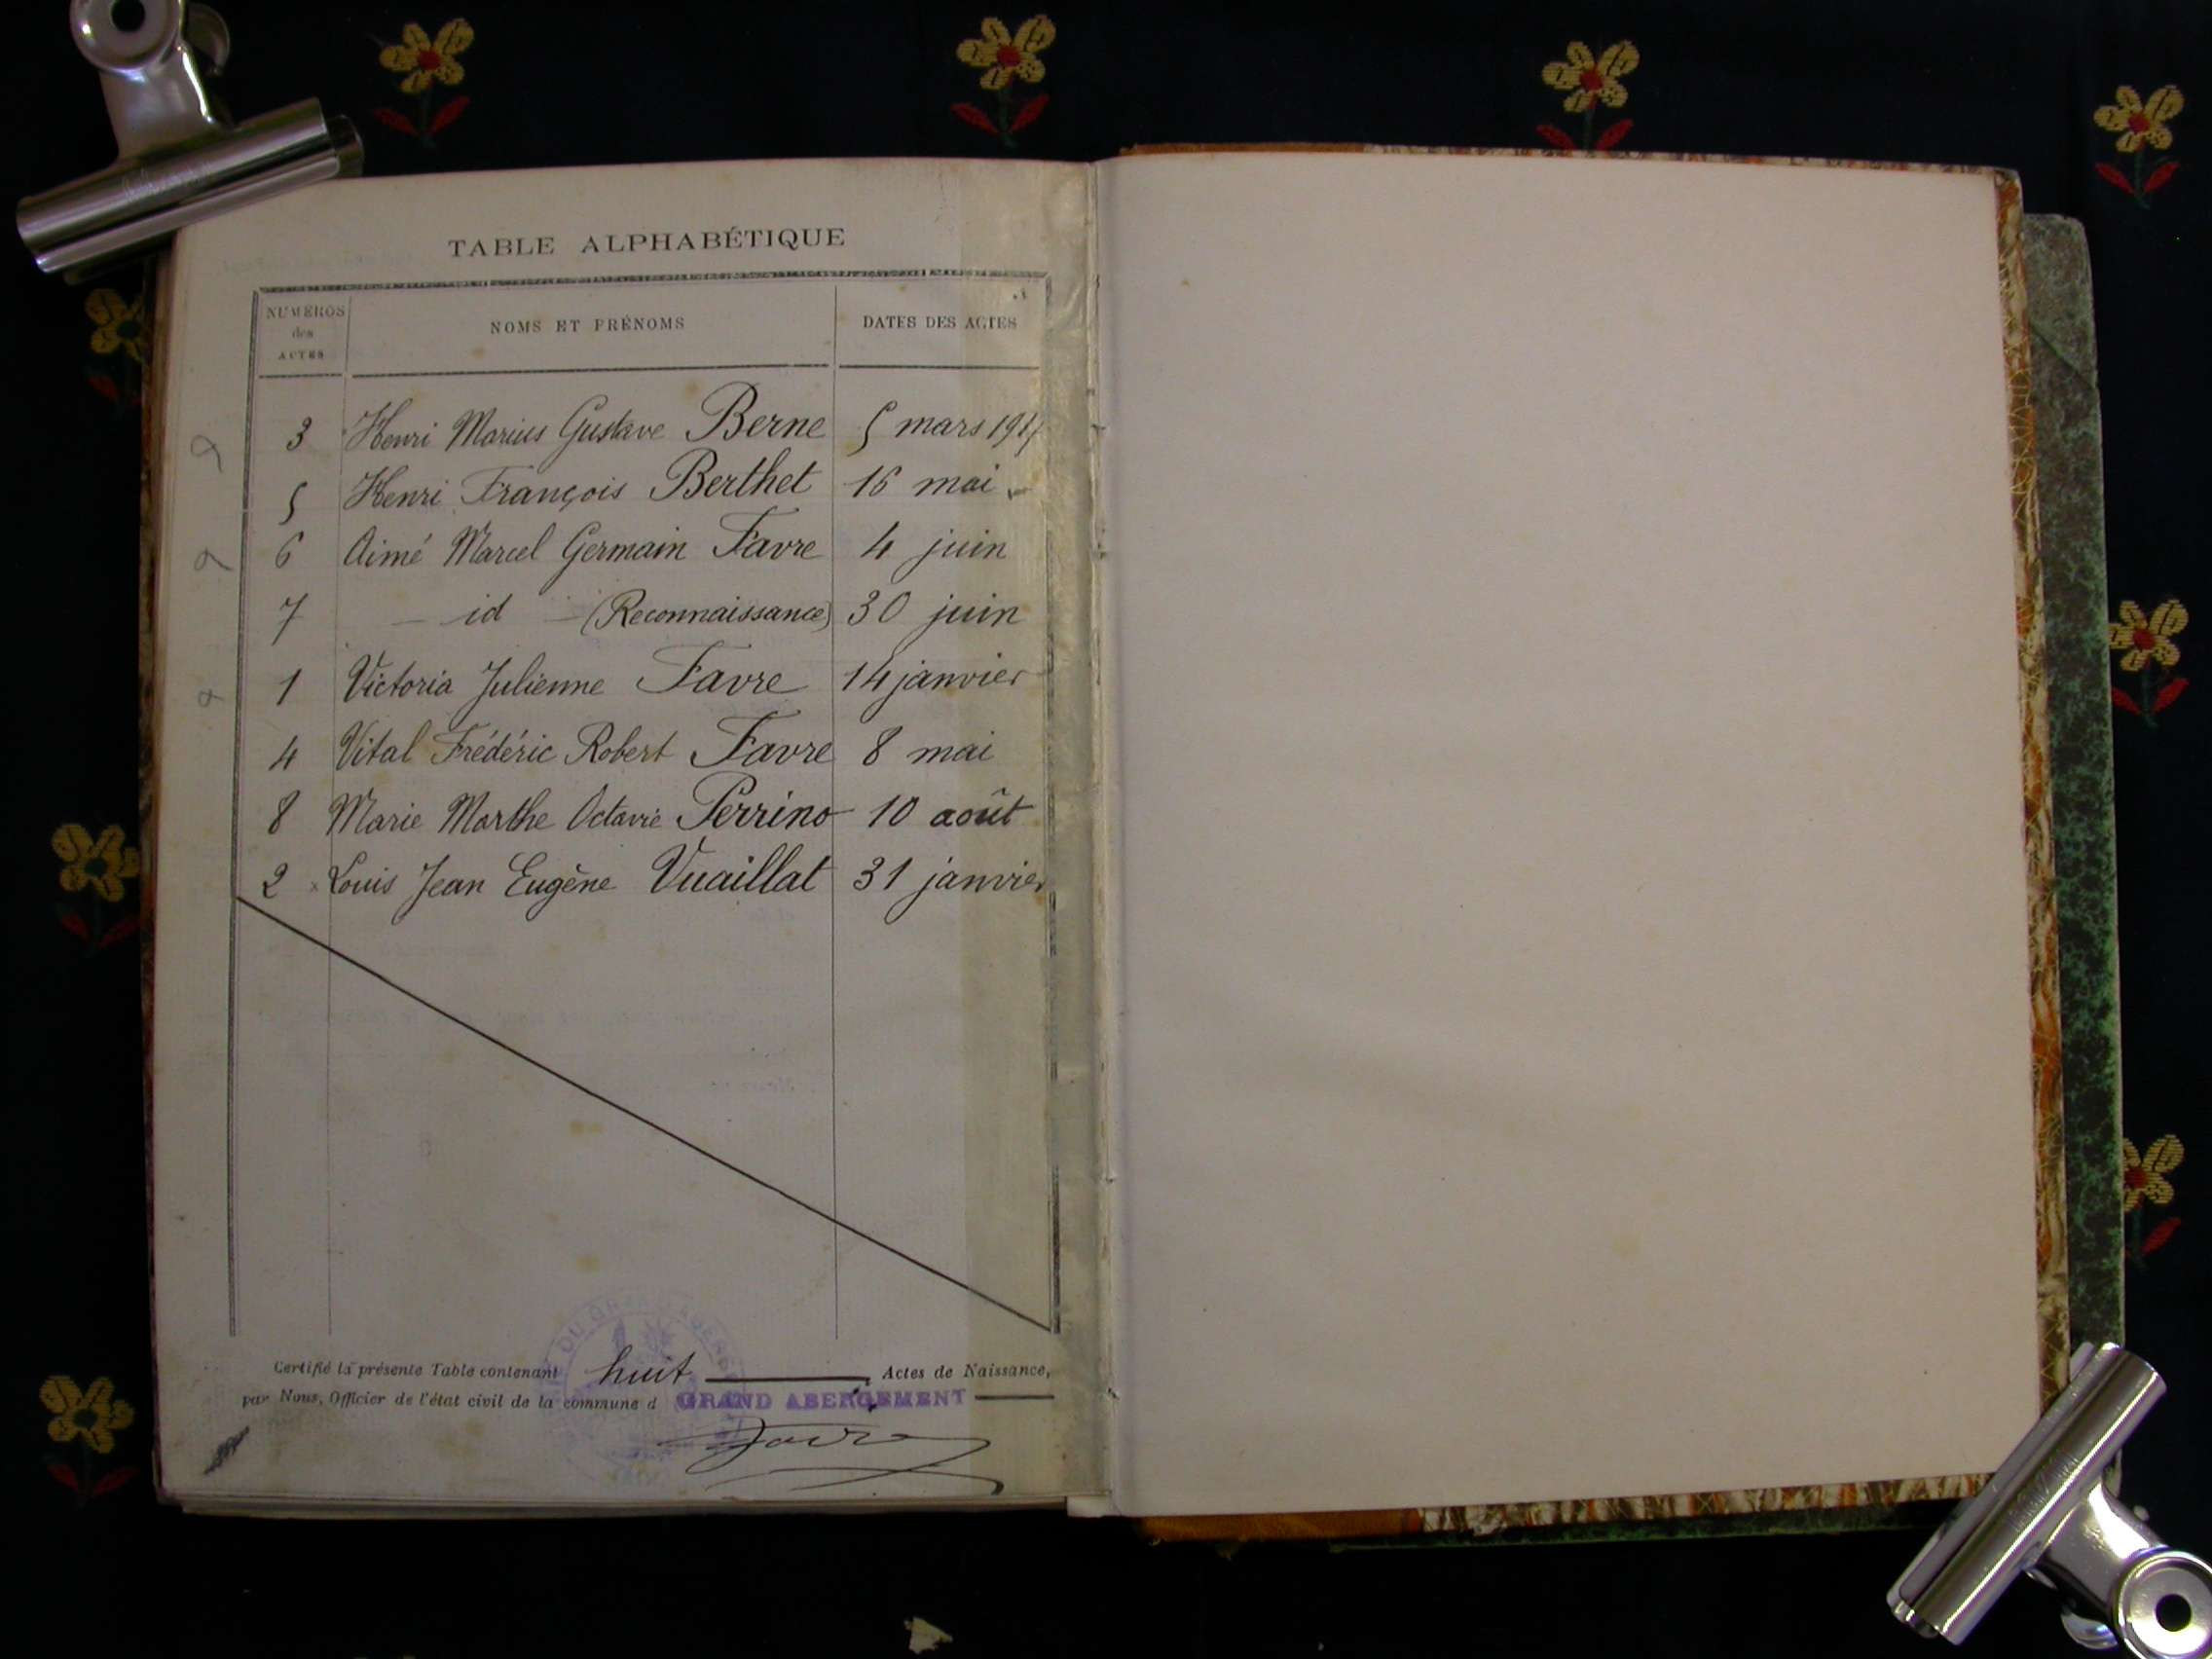 TABLE ALPHABÉTIQUE
NUMÉROS des ACTES NOMS ET PRÉNOMS DATES DES ACTES
3 Henri Marius Gustave Berne 5 mars 1917
5 Henri François Berthet 16 mai
6 Aimé Marcel Germain Favre 4 juin
7 — id — (Reconnaissance) 30 juin
1 Victoria Julienne Favre 14 janvier
4 Vital Frédéric Robert Favre 8 mai
8 Marie Marthe Octavie Perrino 10 août
2 Louis Jean Eugène Vuaillat 31 janvier
Certifié la présente Table contenant huit Actes de Naissance,
par Nous, Officier de l'état civil de la commune d GRAND ABERGEMENT
Favre